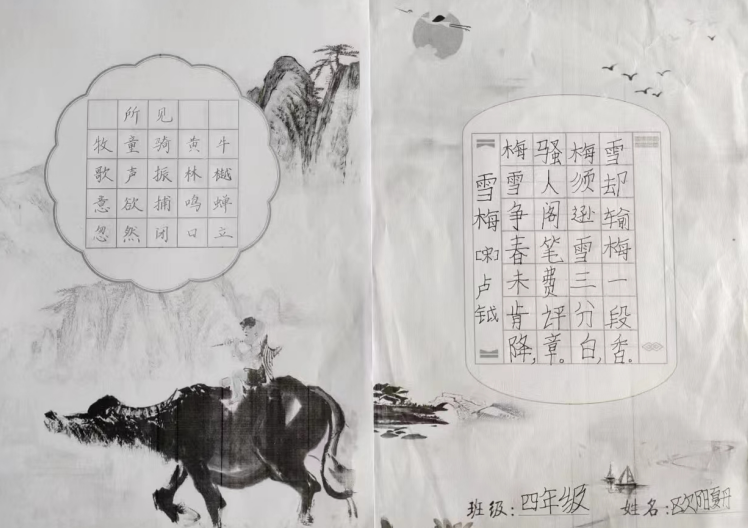 所见
牧童骑黄牛
歌声振林樾
意欲捕鸣蝉
忽然闭口立
雪梅
[宋]卢钺
梅雪争春未肯降，
骚人阁笔费评章。
梅须逊雪三分白，
雪却输梅一段香。
班级:四年级
姓名:欧阳